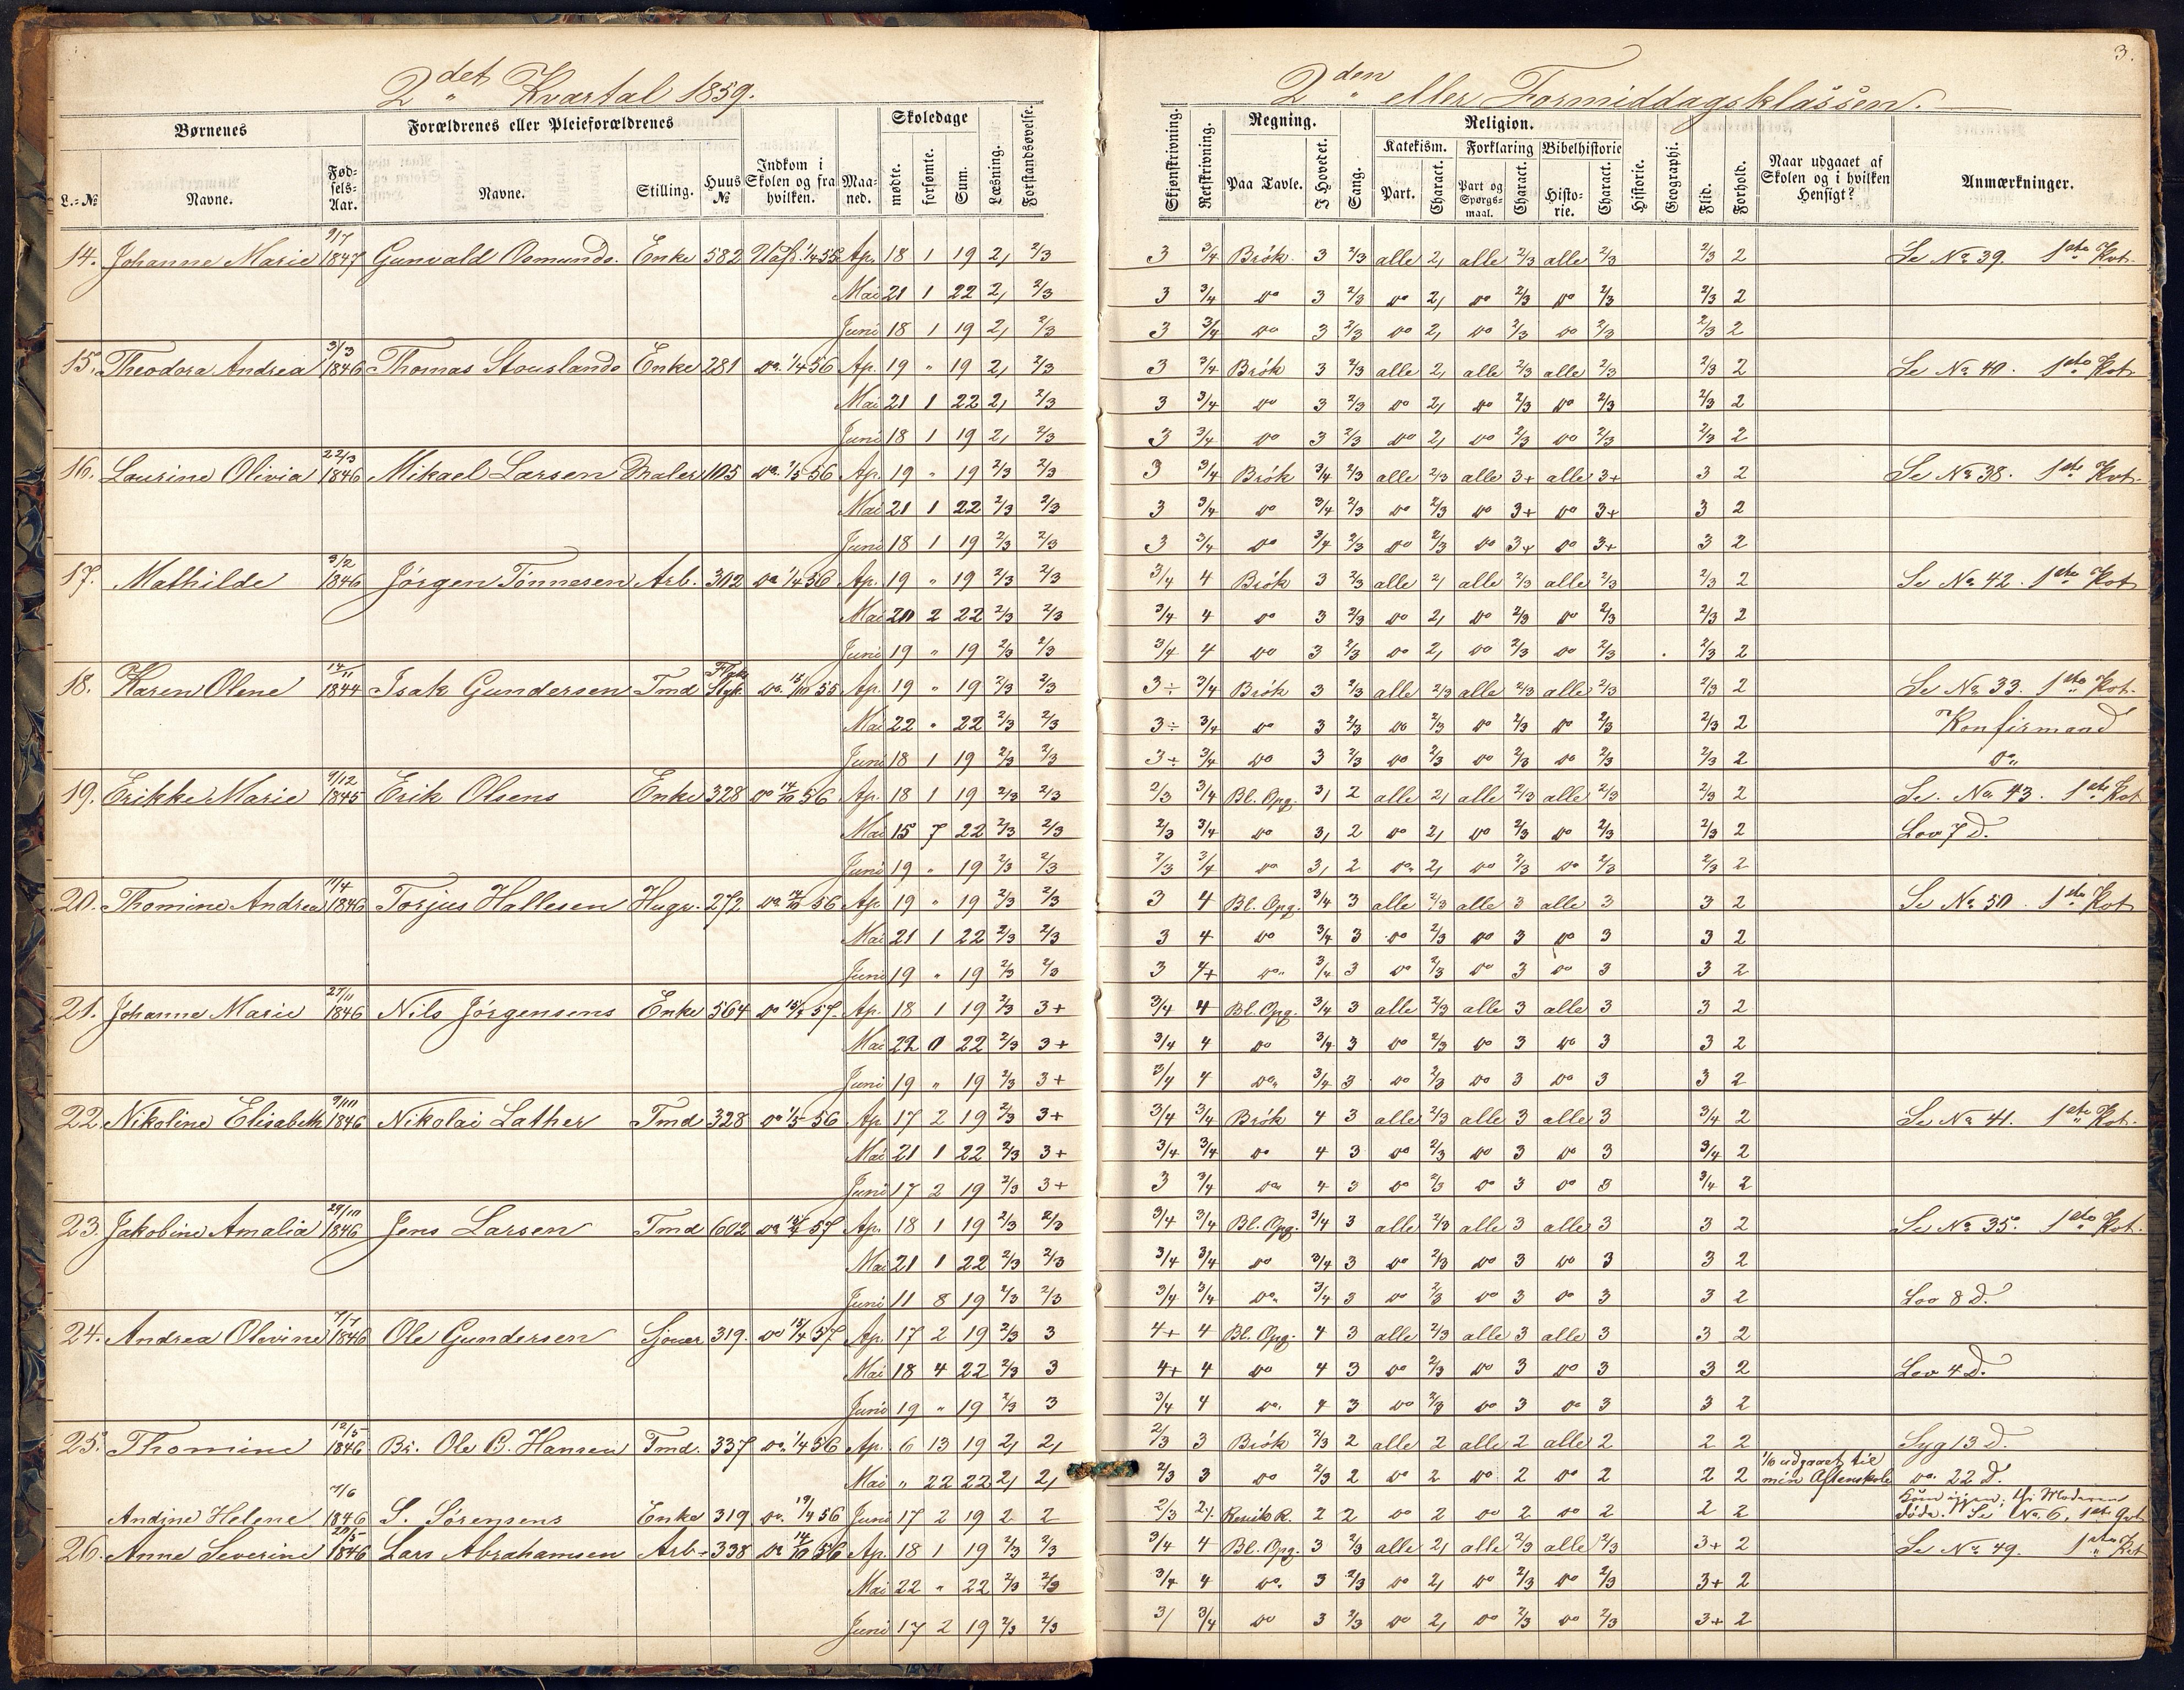 3.
2det Kvartal 1859.
2den eller Formiddagsklassen.
Børnenes
Forældrenes eller Pleieforældrenes
Skoledage
L.-No
Navne.
Fød-
sels-
Aar.
Navne.
Stilling.
Huus
No
Indkom i
Skolen og fra
hvilken.
Maa-
ned.
mødte.
forsømte.
Sum.
Læsning.
Forstandsøvelse.
Skjønskrivning.
Retskrivning.
Regning.
Paa Tavle.
I Hovedet.
Sang.
Religion.
Katekism.
Forklaring
Bibelhistorie
Part.
Charact.
Part og
Spørgs-
maal.
Charact.
Histo-
rie.
Charact.
Historie.
Geographi.
Flid.
Forhold.
Naar udgaaet af
Skolen og i hvilken
Hensigt?
Anmærkninger.
14. Johanne Marie 9/7 1847 Gunvald Osmunds. Enke 582 1/4 55 Ap. 18 1 19 2, 2/3 3 3/4 Brök 3 2/3 alle 2, alle 2/3 alle 2/3 2/3 2 Se No 39. 1ste Kvt.
Mai 21 1 22 2, 2/3 3 3/4 do 3 2/3 do 2, do 2/3 do 2/3 2/3 2
Juni 18 1 19 2, 2/3 3 3/4 do 3 2/3 do 2, do 2/3 do 2/3 2/3 2
15. Theodora Andrea 3/3 1846 Thomas Stouslands Enke 281 do. 1/4 56 Ap. 19 " 19 2, 2/3 3 3/4 Brök 3 2/3 alle 2, alle 2/3 alle 2/3 2/3 2 Se No 40. 1ste Kvt.
Mai 21 1 22 2, 2/3 3 3/4 do 3 2/3 do 2, do 2/3 do 2/3 2/3 2
Juni 18 1 19 2, 2/3 3 3/4 do 3 2/3 do 2, do 2/3 do 2/3 2/3 2
16. Laurine Olivia 22/3 1846 Mikael Larsen Maler 105 do. 1/5 56 Ap. 19 " 19 2/3 2/3 3 3/4 Brök 3/4 2/3 alle 2/3 alle 3+ alle 3+ 3 2 Se No 38. 1ste Kvt.
Mai 21 1 22 2/3 2/3 3 3/4 do 3/4 2/3 do 2/3 do 3+ do 3+ 3 2
Juni 18 1 19 2/3 2/3 3 3/4 do 3/4 2/3 do 2/3 do 3+ do 3+ 3 2
17. Mathilde 3/2 1846 Jörgen Tönnesen Arb. 302 do 1/4 56 Ap. 19 " 19 2/3 2/3 3/4 4 Brök 3 2/3 alle 2, alle 2/3 alle 2/3 2/3 2 Se No 42. 1ste Kvt.
Mai 20 2 22 2/3 2/3 3/4 4 do 3 2/3 do 2, do 2/3 do 2/3 2/3 2
Juni 19 " 19 2/3 2/3 3/4 4 do 3 2/3 do 2, do 2/3 do 2/3 2/3 2
18. Karen Olene 14/11 1844 Isak Gundersen Tmd do. 15/10 55 Ap. 19 " 19 2/3 2/3 3÷ 3/4 Brök 3 2/3 alle 2/3 alle 2/3 alle 2/3 2/3 2 Se No 33. 1ste Kvt.
Mai 22 " 22 2/3 2/3 3÷ 3/4 do 3 2/3 do 2/3 do 2/3 do 2/3 2/3 2 Konfirmand
Juni 18 1 19 2/3 2/3 3÷ 3/4 do 3 2/3 do 2/3 do 2/3 do 2/3 2/3 2 do.
19. Erikke Marie 9/12 1845 Erik Olsens Enke 328 do 14/10 56 Ap. 18 1 19 2/3 2/3 2/3 3/4 Bl. Opg. 3, 2 alle 2, alle 2/3 alle 2/3 2/3 2 Se. No 43. 1ste Kvt
Mai 15 7 22 2/3 2/3 2/3 3/4 do 3, 2 do 2, do 2/3 do 2/3 2/3 2 Lov 7 d.
Juni 19 " 19 2/3 2/3 2/3 3/4 do 3, 2 do 2, do 2/3 do 2/3 2/3 2
20. Thomine Andrea 11/4 1846 Torjus Hallesen Hugr. 272 do 14/10 56 Ap. 19 " 19 2/3 2/3 3 4 Bl. Opg. 3/4 3 alle 2/3 alle 3 alle 3 3 2 Se No 50. 1ste Kvt
Mai 21 1 22 2/3 2/3 3 4 do 3/4 3 do 2/3 do 3 do 3 3 2
Juni 19 " 19 2/3 2/3 3 4+ do. 3/4 3 do 2/3 do 3 do 3 3 2
21. Johanne Marie 27/11 1846 Nils Jörgensens Enke 564 do 57. Ap. 18 1 19 2/3 3+ 3/4 4 Bl. Opg. 3/4 3 alle 2/3 alle 3 alle 3 3 2
Mai 22 0 22 2/3 3+ 3/4 4 do 3/4 3 do 2/3 do 3 do 3 3 2
Juni 19 " 19 2/3 3+ 3/4 4 do. 3/4 3 do 2/3 do 3 do 3 3 2
22. Nikoline Elisabeth 9/10 1846 Nikolai Lather Tmd 328 do 1/5 56 Ap 17 2 19 2/3 3+ 3/4 3/4 Brök 4 3 alle 2/3 alle 3 alle 3 3/4 2 Se No 41. 1ste Kvt.
Mai 21 1 22 2/3 3+ 3/4 3/4 do 4 3 do 2/3 do 3 do 3 3/4 2
Juni 17 2 19 2/3 3+ 3 3/4 do. 4 3 do 2/3 do 3 do 3 3/4 2
23. Jakobine Amalia 29/10 1846 Jens Larsen Tmd 602 do 57 Ap. 18 1 19 2/3 2/3 3/4 3/4 Bl. Opg. 3/4 3 alle 2/3 alle 3 alle 3 3 2 Se No 35. 1ste Kvt.
Mai 21 1 22 2/3 2/3 3/4 3/4 do 3/4 3 do 2/3 do 3 do 3 3 2
Juni 11 8 19 2/3 2/3 3/4 3/4 do. 3/4 3 do 2/3 do 3 do 3 3 2 Lov 8 d.
24. Andrea Olevine 7/7 1846 Ole Gundersen Sjöuer 319. do 15/4 57 Ap. 17 2 19 2/3 3 4+ 4 Bl. Opg. 4 3 alle 2/3 alle 3 alle 3 3 2
Mai 18 4 22 2/3 3 4+ 4 do 4 3 do 2/3 do 3 do 3 3 2 Lov 4 d.
Juni 19 " 19 2/3 3 3/4 4 do. 4 3 do 2/3 do 3 do 3 3 2
25. Thomine 12/5 1846 Br. Ole B. Hansen Tmd. 337 do. 1/4 56 Ap. 6 13 19 2, 2, 2/3 3 Brök 2/3 2 alle 2 alle 2 alle 2 2 2 Syg 13 d.
Mai " 22 22 2, 2, 2/3 3 do 2/3 2 do 2 do 2 do 2 2 2 1/6 udgaaet til min Aftenskole do. 22 d.
Andine Helene 7/6 1846 S. Sörensens Enke 319 do. 19/4 56 Juni 17 2 19 2 2 2/3 R. 2 2 do 2 do 2 do 2 2 2 Kom igjen, thi Moderen döde. Se No. 6, 1ste Qvt.
26. Anne Severine 20/5 1846 Lars Abrahamsen Arb. 338 do 14/10 56 Ap. 18 1 19 2/3 2/3 3/4 4 Bl. Opg. 3 2/3 alle 2, alle 2/3 alle 2/3 3+ 2 Se No 49. 1ste Kvt
Mai 22 " 22 2/3 2/3 3/4 4 do. 3 2/3 do 2, do 2/3 do 2/3 3+ 2
Juni 17 2 19 2/3 2/3 3/ 3/4 do 3 2/3 do 2, do 2/3 do 2/3 3+ 2